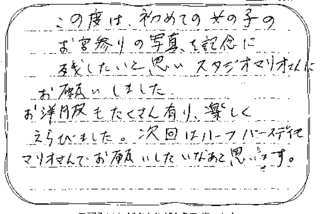 この度は、初めての女の子の
お宮参りの写真を記念に
残したいと思い スタジオマリオさんに
お願いしました。
お洋服もたくさん有り、楽しく
えらびました。次回はハーフバースデイで
マリオさんでお願いしたいなあと思います。